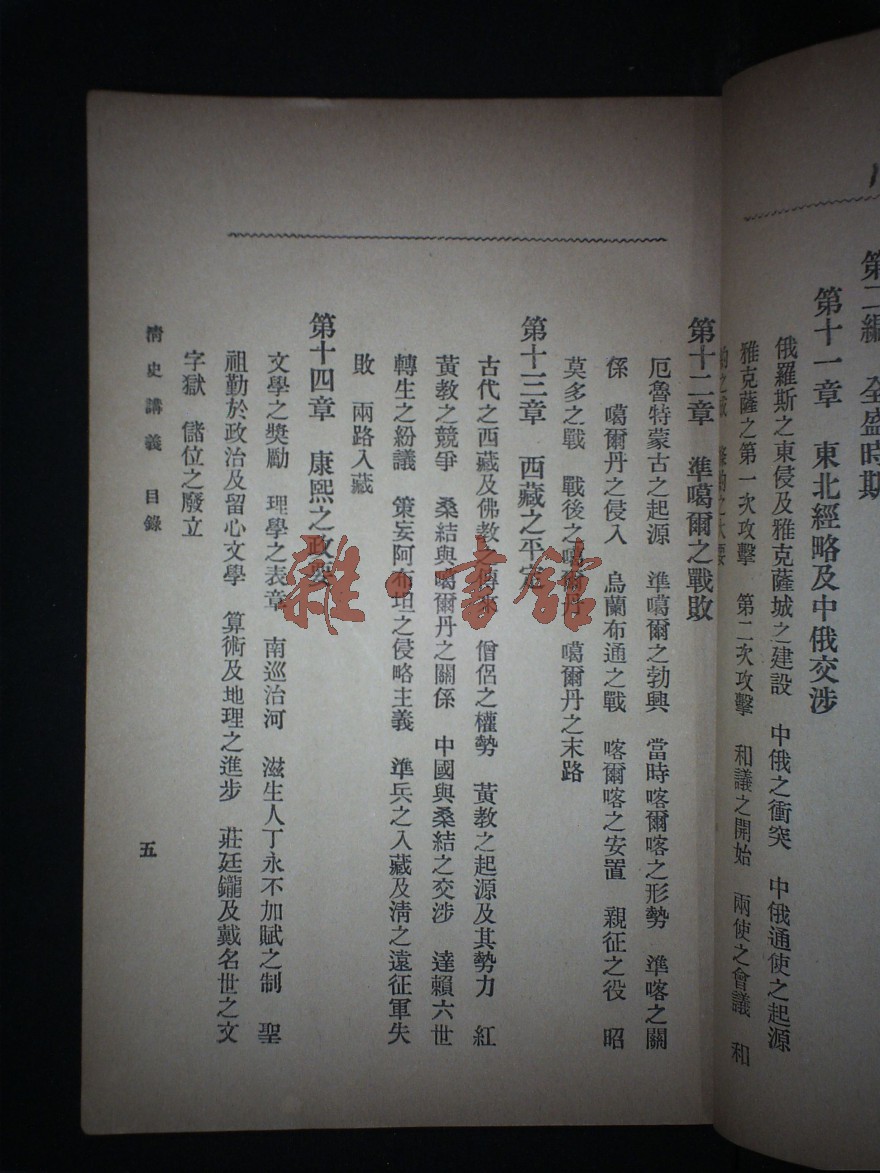 第二編　全盛時期
第十一章　東北經略及中俄交涉
俄羅斯之東侵及雅克薩城之建設　中俄之衝突　中俄通使之起源
雅克薩之第一次攻擊　第二次攻擊　和議之開始　兩使之會議　和
約之成　條約之大要
第十二章　準噶爾之戰敗
厄魯特蒙古之起源　準噶爾之勃興　當時喀爾喀之形勢　準喀之關
係　噶爾丹之侵入　烏蘭布通之戰　喀爾喀之安置　親征之役　昭
莫多之戰　戰後之噶爾丹　噶爾丹之末路
第十三章　西藏之平定
古代之西藏及佛教之傳來　僧侶之權勢　黃教之起源及其勢力　紅
黃教之競爭　桑結與噶爾丹之關係　中國與桑結之交涉　達賴六世
轉生之紛議　策妄阿布坦之侵略主義　準兵之入藏及清之遠征軍失
敗　兩路入藏
第十四章　康熙之政要
文學之獎勵　理學之表章　南巡治河　滋生人丁永不加賦之制　聖
祖勤於政治及留心文學　算術及地理之進步　莊廷鑨及戴名世之文
字獄　儲位之廢立
清史講義　目錄
五
雜·書館